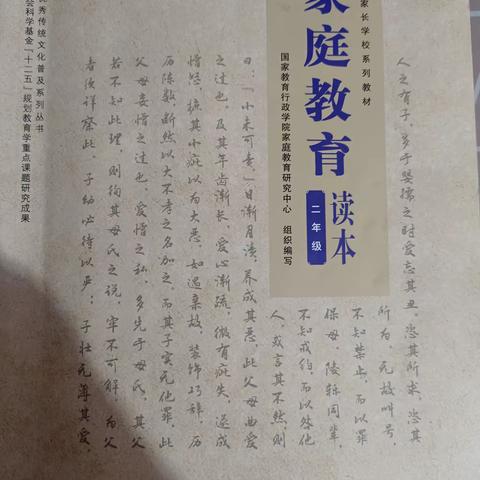 人之有子,多于婴孺之时爱忘其丑。恣其所求,恣其
所为,无故叫号,
不知禁止,而以罪
保母。陵轹同辈,
不知戒约,而以咎他
人。或言其不然,则
曰:「小未可责。」日渐月渍,养成其恶,此父母曲爱
之过也。及其年齿渐长,爱心渐疏,微有疵失,遂成
憎怒,摭其小疵以为大恶。如遇亲故,装饰巧辞,历
历陈数,断然以大不孝之名加之。而其子实无他罪,此
父母妄憎之过也。爱憎之私,多先于母氏,其父
若不知此理,则徇其母氏之说,牢不可解。为父
者须详察此。子幼必待以严;子壮无薄其爱。
家长学校系列教材
家庭教育
读本
二年级
国家教育行政学院家庭教育研究中心 组织编写
优秀传统文化普及系列丛书
会科学基金「十二五」规划教育学重点课题研究成果